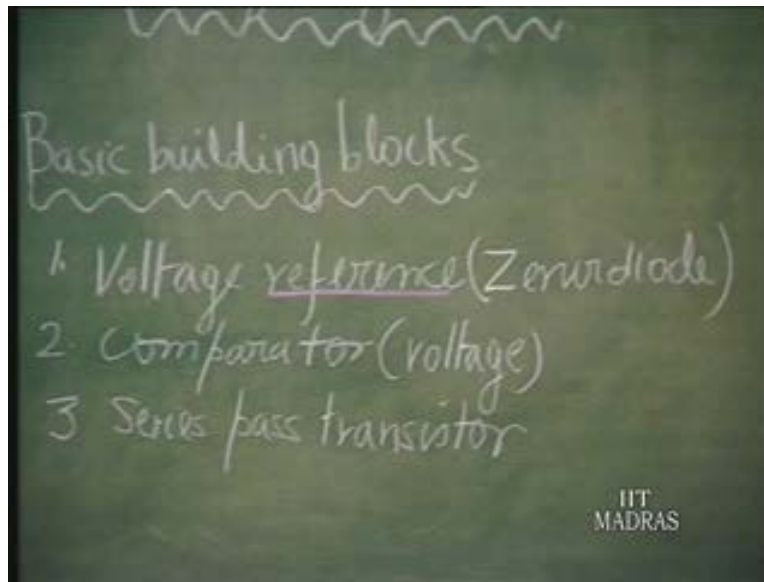 Basic building blocks
1. Voltage reference (Zener diode)
2. Comparator (voltage)
3 Series pass transistor
IIT
MADRAS